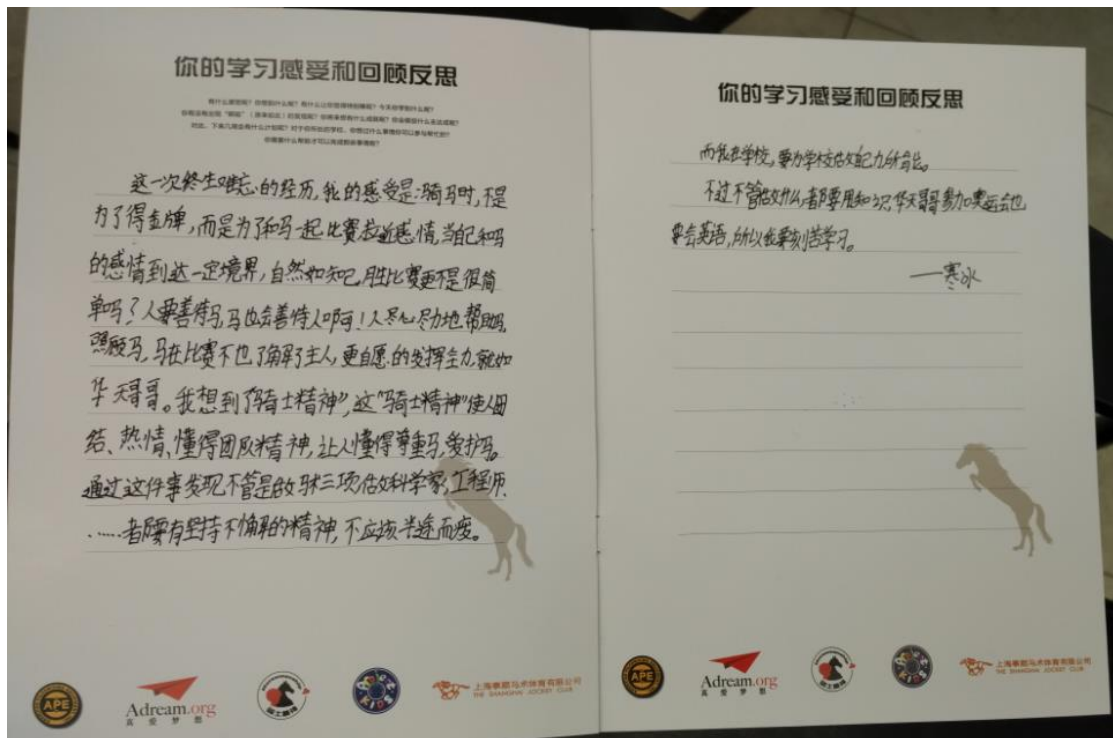 你的学习感受和回顾反思
这一次终生难忘的经历,我的感受是:骑马时,不是
为了得金牌,而是为了和马一起比赛拉近感情,当自己和马
的感情到达一定境界,自然如知己,胜比赛更不是很简
单吗?人要善待马,马也会善待人啊!人尽心尽力地帮助马,
照顾马,马在比赛不也了解了主人,更自愿的发挥全力,就如
华天哥哥。我想到了“骑士精神”,这“骑士精神”使人团
结、热情、懂得团队精神,让人懂得尊重马,爱护马。
通过这件事发现不管是做马术三项,做科学家,工程师
……都要有坚持不懈的精神,不应该半途而废。
APE
Adream.org
真爱梦想
KIDS
THE SHANGHAI JOCKEY CLUB
你的学习感受和回顾反思
而我在学校,要为学校做自己力所能及。
不过不管做什么,都要用知识,华天哥哥参加奥运会也
要会英语,所以我要刻苦学习。
——寒冰
APE
Adream.org
真爱梦想
KIDS
THE SHANGHAI JOCKEY CLUB